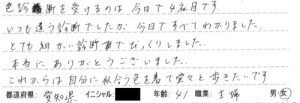 色診断を受けるのは今日で4会目です
いつも違う診断でしたが、今日ですべてわかりました。
とても細かい診断書でびっくりしました。
本当にありがとうございました。
これからは自分に似合う色を着て堂々と歩きたいです
都道府県: 愛知県 イニシャル: 年齢: 41 職業: 主婦 男・女